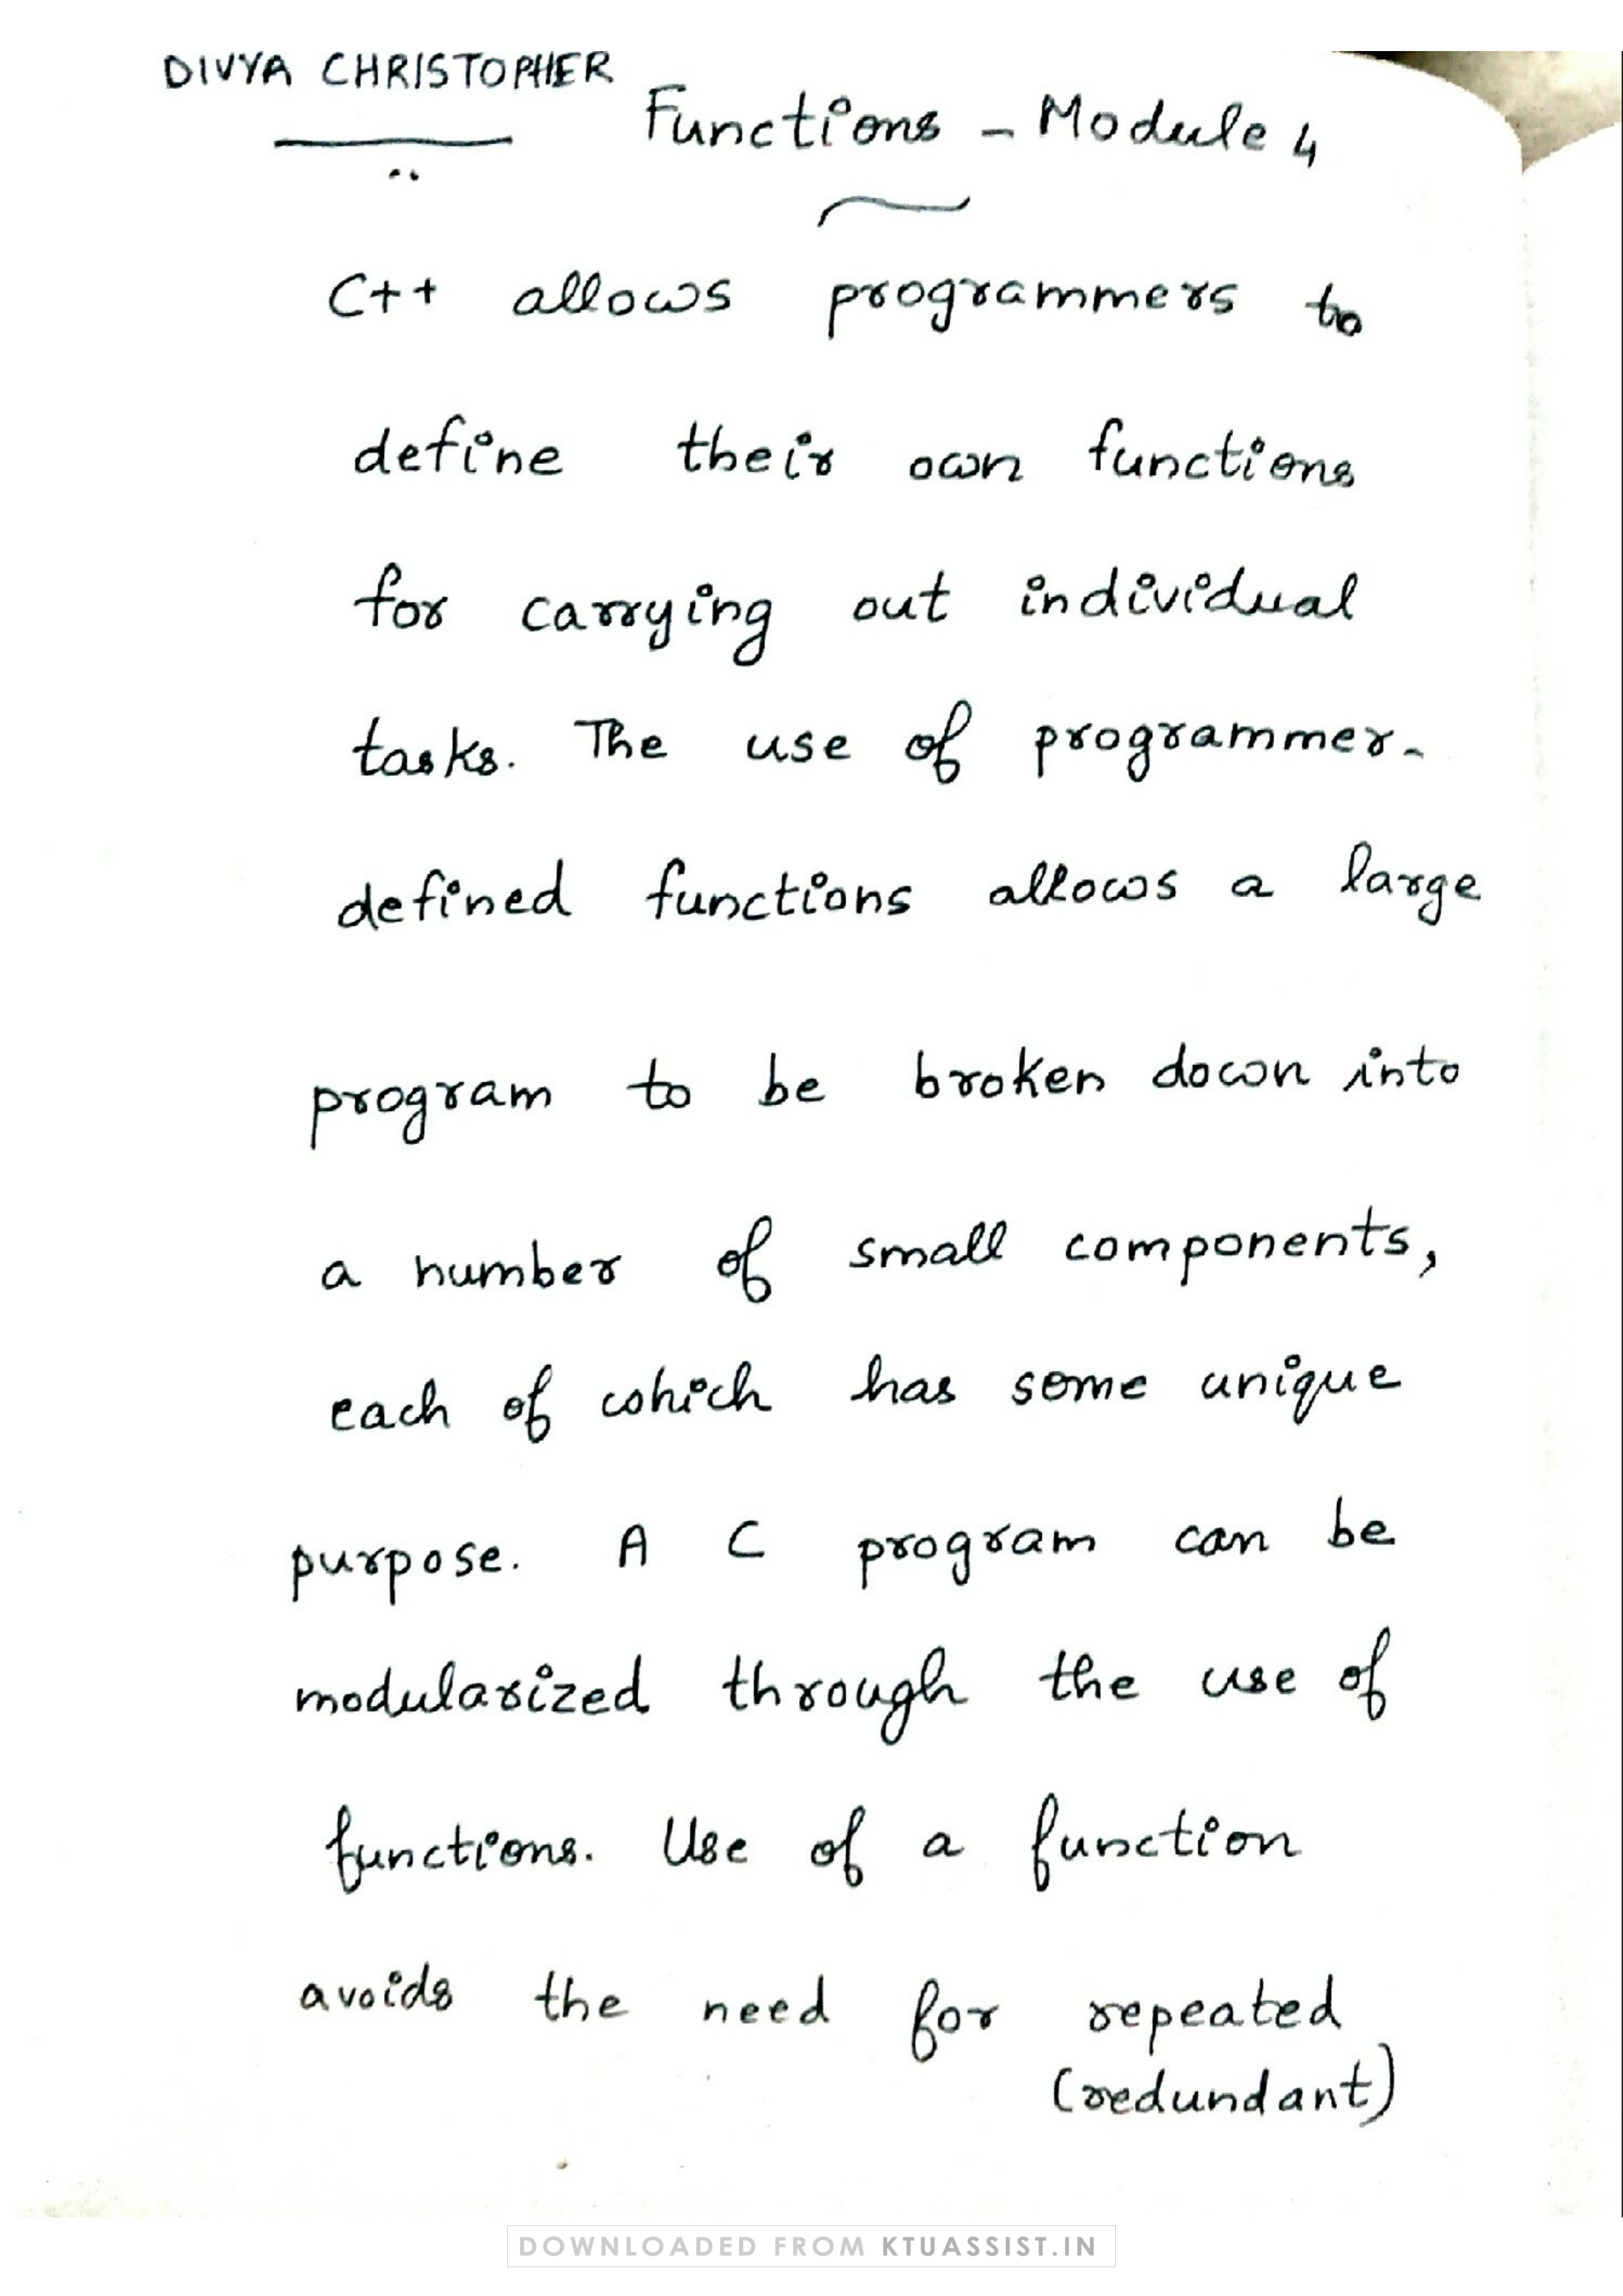 DIVYA CHRISTOPHER
Functions - Module 4
C++ allows programmers to
define their own functions
for carrying out individual
tasks. The use of programmer-
defined functions allows a large
program to be broken down into
a number of small components,
each of which has some unique
purpose. A C program can be
modularized through the use of
functions. Use of a function
avoids the need for repeated
(redundant)
DOWNLOADED FROM KTUASSIST.IN